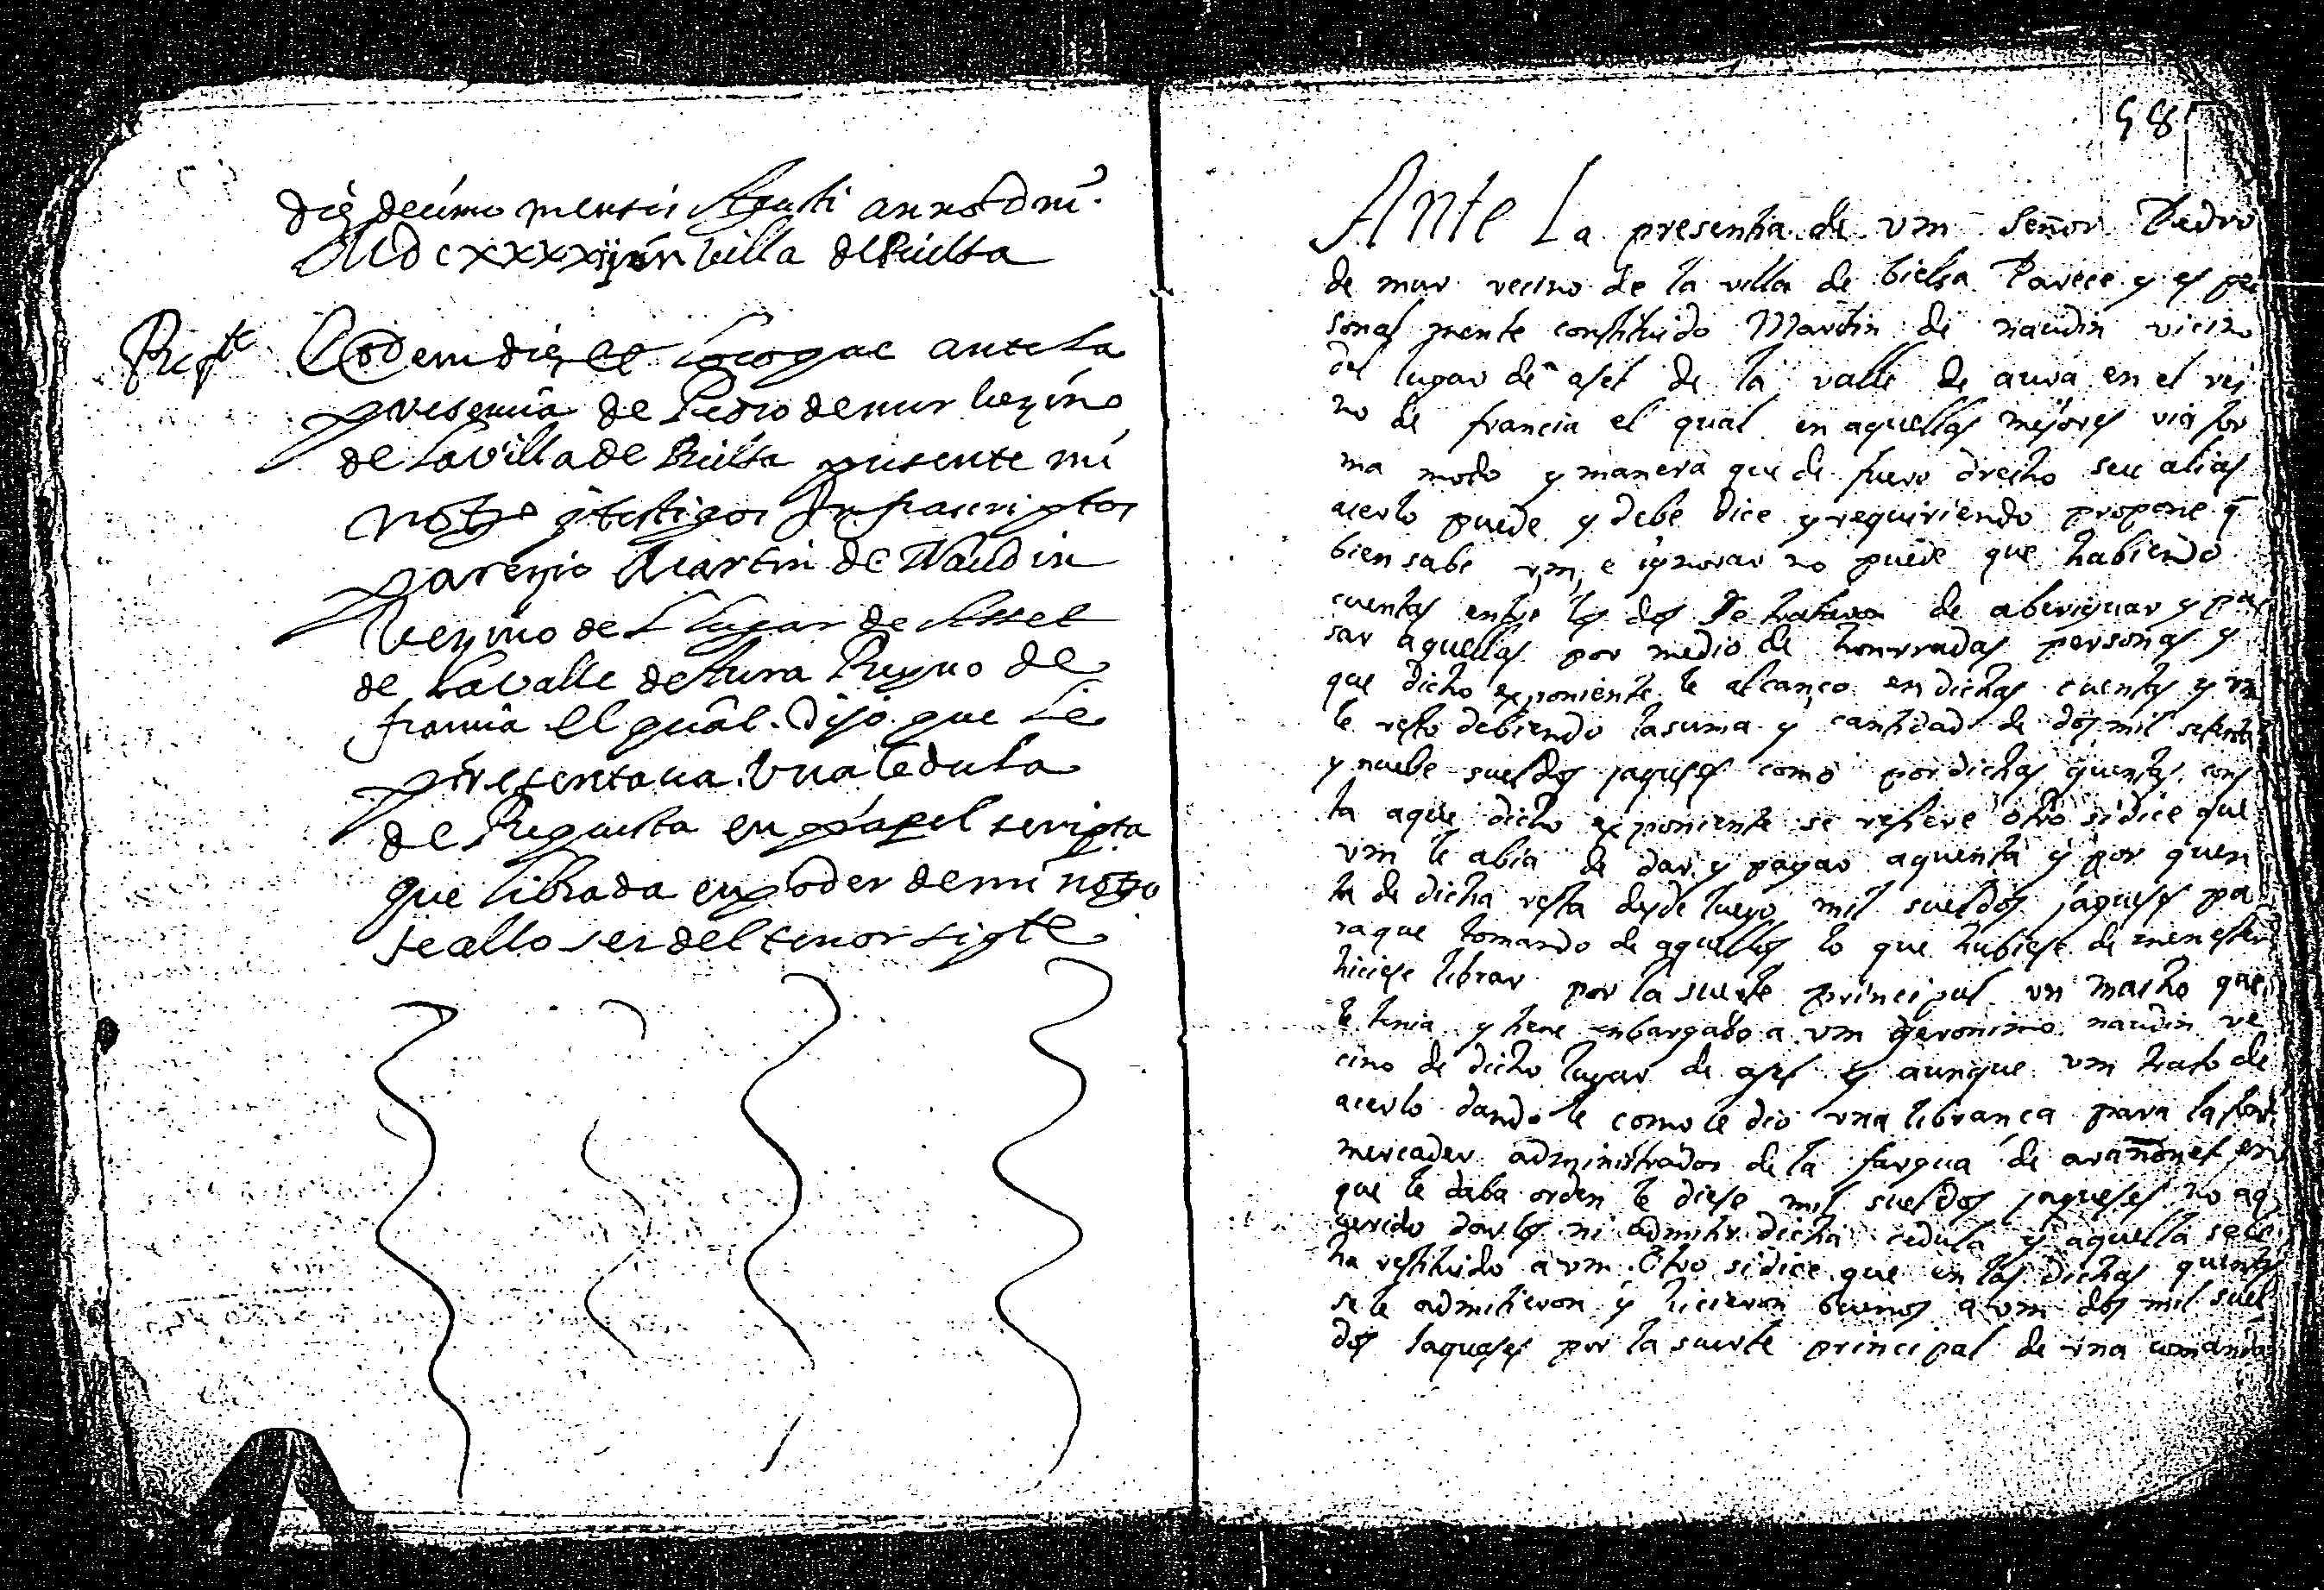 die decimo mensis Agusti anno Dni.
MDcxxxxiij in villa de Bielsa
Reqte Eodem die et loco que ante la
presencia de Pedro de mur vezino
de la villa de Bielsa presente mi
notro y testigos Infrascriptos
parezio Martin de Naudin
vezino del lugar de Asset
de la valle de Aura Reyno de
francia el qual dijo que le
presentaua una cedula
de Requesta en papel scripta
que librada en poder de mi notro
se allo ser del tenor sigte
58
Ante La presentia de vm señor Pedro
de mur vecino de la villa de bielsa Parece y es per
sonal mente constituido Martin de naudin vicino
del lugar de aset de la valle de aura en el rei
no de francia el qual en aquellas mejores via for
ma modo y manera que de fuero drecho seu alias
acerlo puede y debe dice y requiriendo propone q̃
bien sabe vm e ignorar no puede que habiendo
cuentas entre los dos se trataron de aberiguar y pa
sar aquellas por medio de honrradas personas y
que dicho exponiente le alcanço en dichas cuentas y vm
le resto debiendo la suma y cantidad de dos mil setenta
y nuebe sueldos jaqueses como por dichas quentas cons
ta a que dicho exponiente se refiere otro si dice que
vm le abia de dar y pagar a quenta y por quen
ta de dicha resta desde luego mil sueldos jaqueses pa
ra que tomando de aquellos lo que hubiese de menester
hiciese librar por la suerte principal un macho que
le tenia y tiene enbargado a vm geronimo naudin ve
cino de dicho lugar de aset y aunque vm trato de
acerlo dando le como le dio una librança para
mercader administrador de la fargua de arañonet en
que le daba orden le diese mil sueldos jaqueses no a q
uerido darlos ni admitir dicha cedula y aquella se le
ha restituido a vm Otro si dice que en las dichas quentas
se le admitieron y hicieron buenos a vm dos mil suel
dos Jaqueses por la suerte principal de una comanda